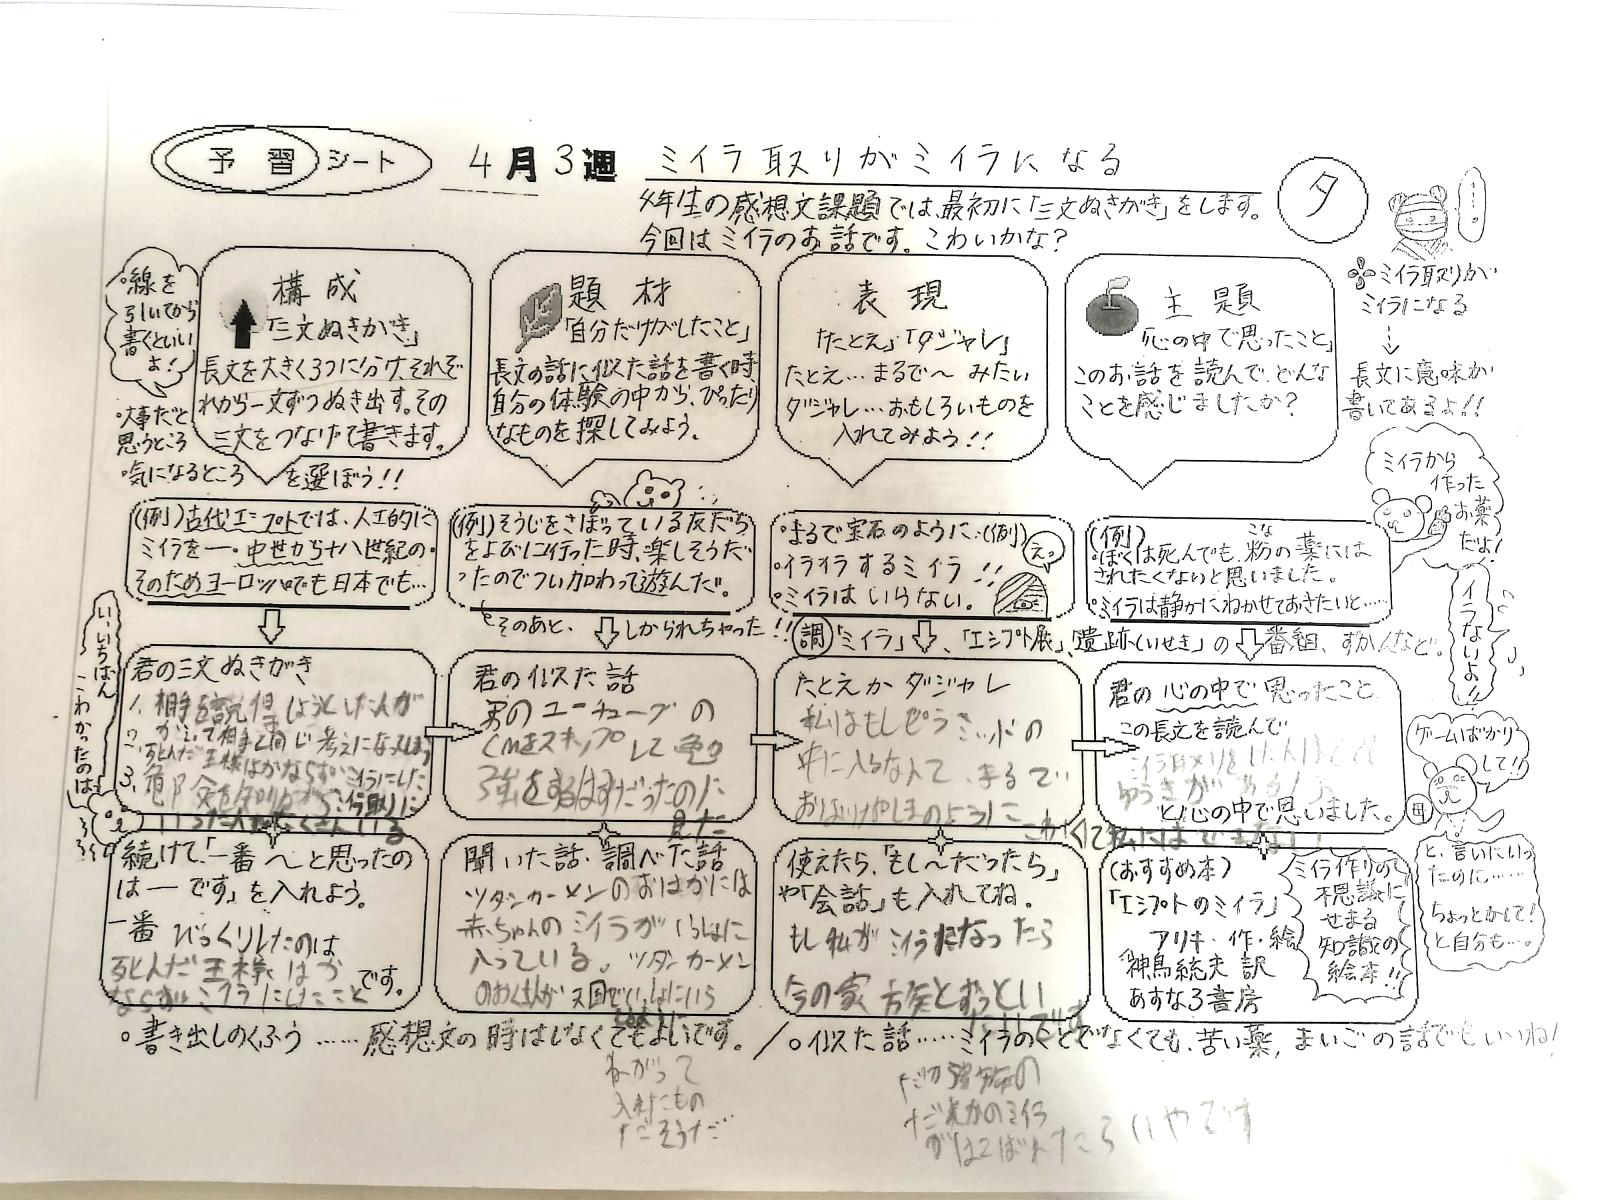 予習シート 4月3週 ミイラ取りがミイラになる
夕
4年生の感想文課題では、最初に「三文ぬきがき」をします。
今回はミイラのお話です。こわいかな？
・線を
引いてから
書くといい
よ！
構成
「三文ぬきがき」
長文を大きく3つに分け、それぞ
れから一文ずつぬき出す。その
三文をつなげて書きます。
・大事だと
思うところ
・気になるところ を選ぼう!!
題材
「自分だけがしたこと」
長文の話に似た話を書く時、
自分の体験の中から、ぴったり
なものを探してみよう。
表現
「たとえ」「ダジャレ」
たとえ…まるで〜みたい
ダジャレ…おもしろいものを
入れてみよう!!
主題
「心の中で思ったこと」
このお話を読んで、どんな
ことを感じましたか？
ミイラ取りが
ミイラになる
長文に意味が
書いてあるよ!!
ミイラから
作った
お薬
だよ！
(例)古代エジプトでは、人工的に
ミイラを一・中世から十八世紀の・
そのためヨーロッパでも日本でも…
(例)そうじをさぼっている友だち
をよびに行った時、楽しそうだ
ったのでつい加わって遊んだ。
そのあと、しかられちゃった!!
・まるで宝石のように…(例)
・イライラするミイラ!!
・ミイラはいらない。
え。
(例)
・ぼくは死んでも、粉の薬には
こな
されたくないと思いました。
・ミイラは静かにねかせておきたいと……
イラないよ!!
調「ミイラ」、「エジプト展」、「遺跡(いせき)」の番組、ずかんなど。
い、いちばん
こわかったのは
君の三文ぬきがき
1. 相手を説得しようとした人が
かえって相手と同じ考えになってしまう
2. 死んだ王様はかならずミイラにした
3.
いった人がたくさんいる
君の似た話
男のユーチューブの
CMをスキップして勉
強をするはずだったのに
見た
たとえかダジャレ
私はもしピラミッドの
中に入るなんて、まるで
おばけやしきのように
こわくて私にはできない！
君の心の中で思ったこと
この長文を読んで
ミイラ取りをした人はとても
ゆうきがある
と心の中で思いました。
ゲームばかり
して!!
母
と、言いにいっ
たのに……
ちょっとかして！
と自分も…。
続けて、「一番〜と思ったの
は―です」を入れよう。
一番 びっくりしたのは
死んだ王様はか
ならずミイラにしたこと です。
聞いた話・調べた話
ツタンカーメンのおはかには
赤ちゃんのミイラがいっしょに
入っている。ツタンカーメン
のおくさんが
ねがって
入れたもの
だそうだ…
使えたら、「もし〜だったら」
や「会話」も入れてね。
もし私がミイラになったら
今の家族とずっとい
たいです
だから家族の
だれかのミイラ
がはこばれたらいやです
(おすすめ本)
「エジプトのミイラ」
アリキ・作・絵
神鳥統夫 訳
あすなろ書房
ミイラ作りの
不思議に
せまる
知識の
絵本!!
○書き出しのくふう……感想文の時はしなくてもよいです。／○似た話……ミイラのことでなくても、苦い薬、まいごの話でもいいね！